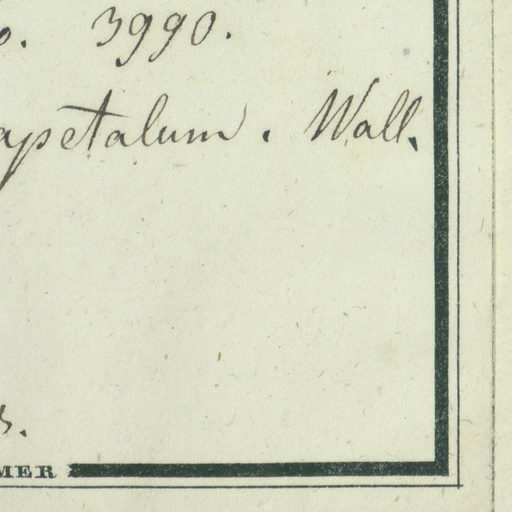 o. 3990.
apetalum. Wall.
s.
MER